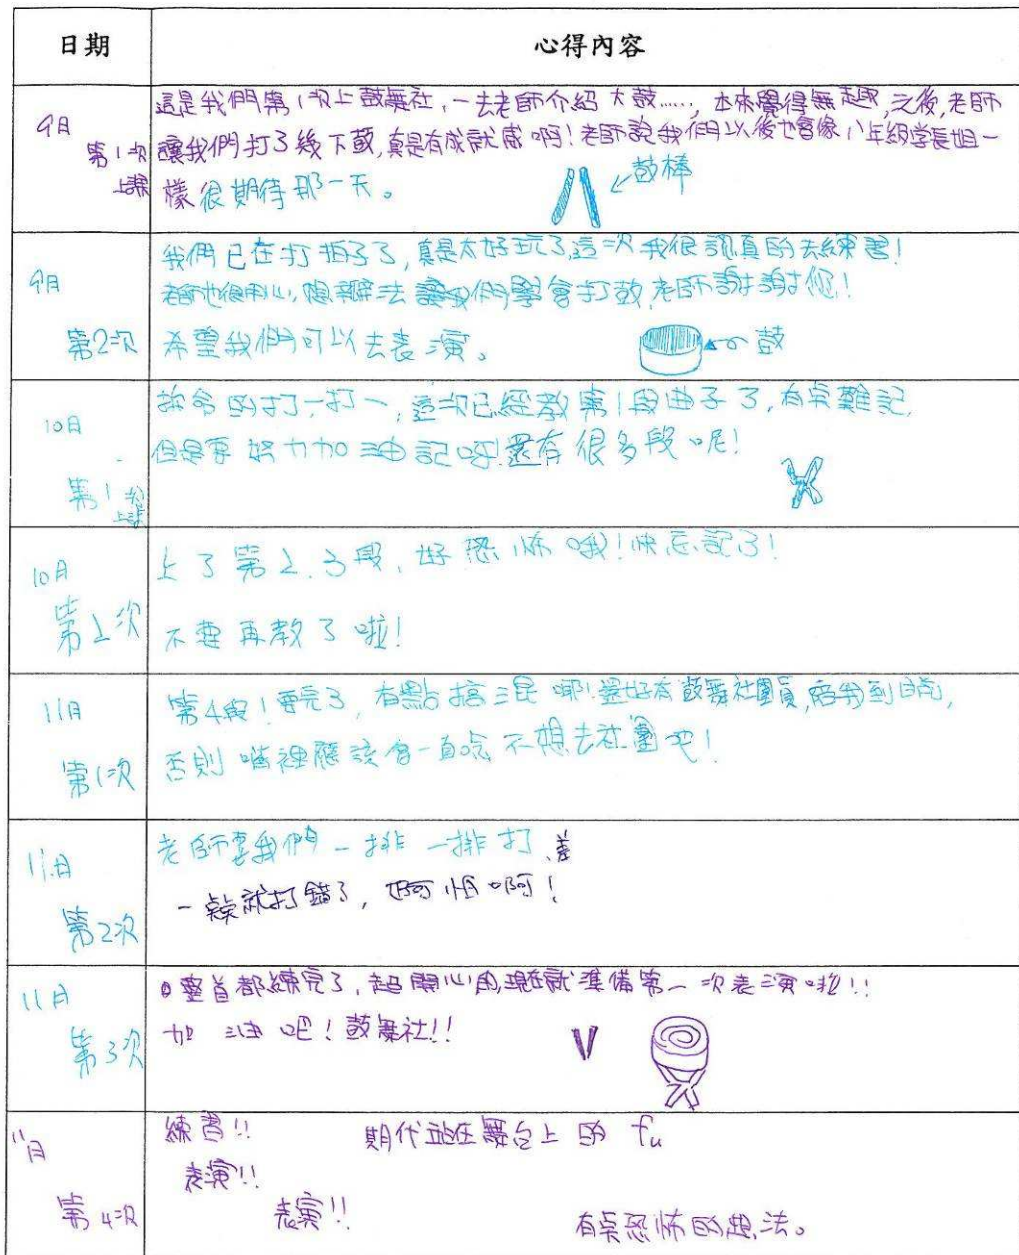 日期
心得內容
9月
第1次
上課
這是我們第1次上鼓舞社,一去老師介紹大鼓……,本來覺得無趣,之後,老師
讓我們打了幾下鼓,真是有成就感啊!老師說我們以後也會像八年級学長姐一
樣很期待那一天。
鼓棒
9月
第2次
我們已在打拍子了,真是太好玩了,這次我很認真的去練習!
老師也很用心,想辦法讓我們學會打鼓,老師謝謝您!
希望我們可以去表演。
鼓
10月
第1次
上課
拚命的打一打一,這次已經教第1段曲子了,有点難記,
但是要努力加油記呀!還有很多段呢!
10月
第2次
上了第2.3段,好恐怖哦!快忘記了!
不要再教了啦!
11月
第1次
第4段!要完了,有點搞混哪!還好有鼓舞社團員,陪我到目前,
否則嘴裡應該會一直唸不想去社團吧!
11月
第2次
老師要我們一排一排打、差
一点就打錯了,可怕啊!
11月
第3次
整首都練完了,超開心的,現在就準備第一次表演啦!!
加油吧!鼓舞社!!
11月
第4次
練習!!
期代站在舞台上的fu
表演!!
表演!!
有点恐怖的想法。